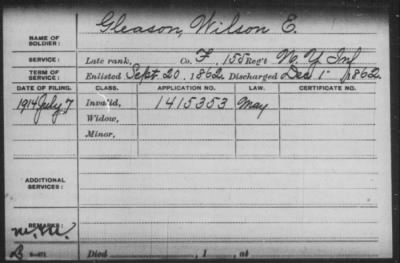 Gleason, Wilson E.
NAME OF SOLDIER:
SERVICE: Late rank, Co. F, 155 Reg't N. Y. Inf
TERM OF SERVICE: Enlisted Sept 20, 1862, Discharged Dec 1, 1862.
DATE OF FILING. CLASS. APPLICATION NO. LAW. CERTIFICATE NO.
1914 July 7 Invalid, 1415353 May
Widow,
Minor,
ADDITIONAL SERVICES:
REMARKS:
Died , 1 , at